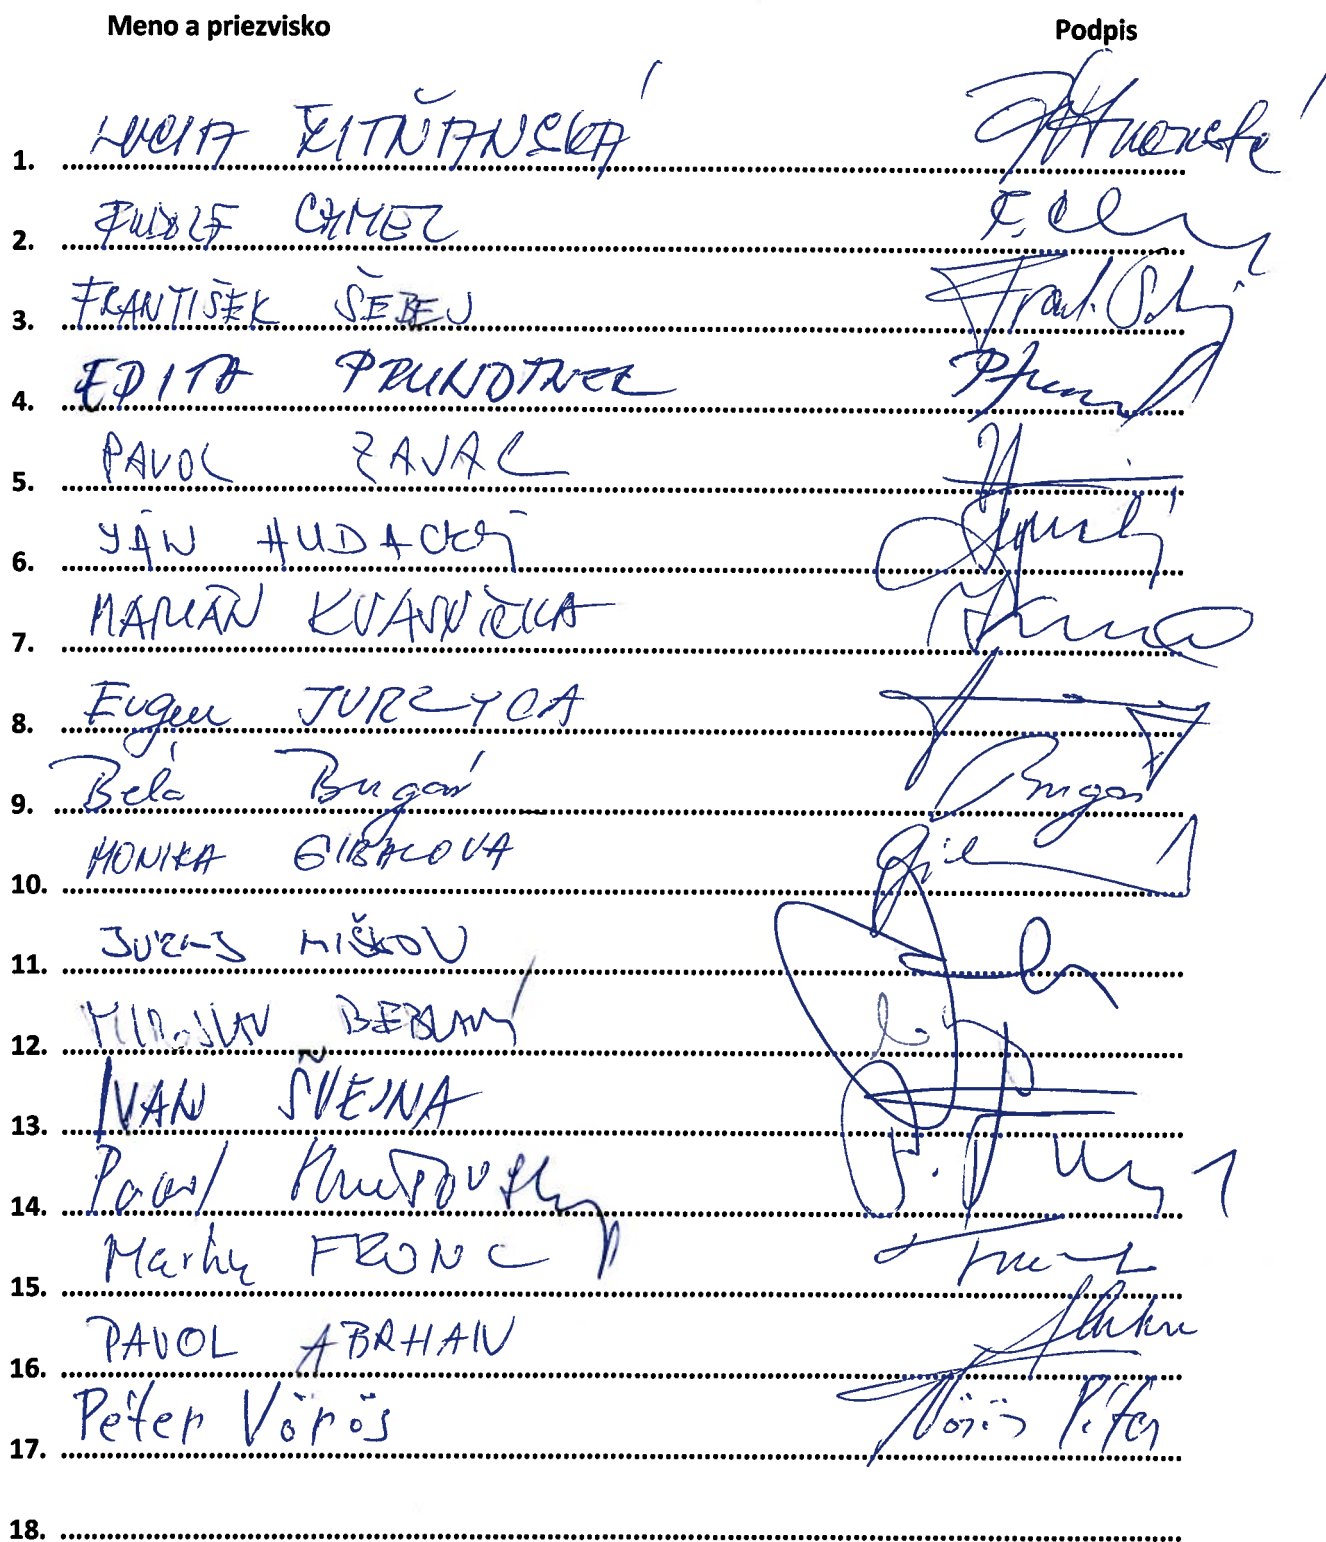 Meno a priezvisko Podpis
1. LUCIA ŽITŇANSKÁ
2. RUDOLF CHMEL
3. FRANTIŠEK ŠEBEJ Frant. Šebej
4. EDITA PFUNDTNER
5. PAVOL ZAJAC
6. JÁN HUDACKÝ
7. MARIÁN KVASNIČKA
8. Eugen JURZYCA
9. Béla Bugár Bugár
10. MONIKA GIBALOVA
11. JURAJ MIŠKOV
12. MIROSLAV BEBLAVÝ
13. IVAN ŠVEJNA
14. Pavol Hrušovský
15. Martin FRONC
16. PAVOL ABRHAN
17. Péter Vörös Vörös Péter
18.